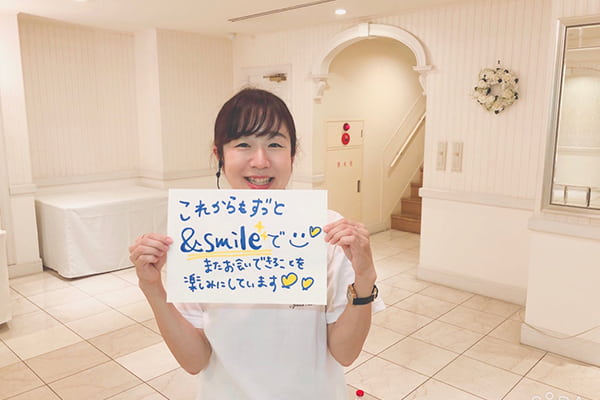 これからもずっと
&smileで
またお会いできることを
楽しみにしています